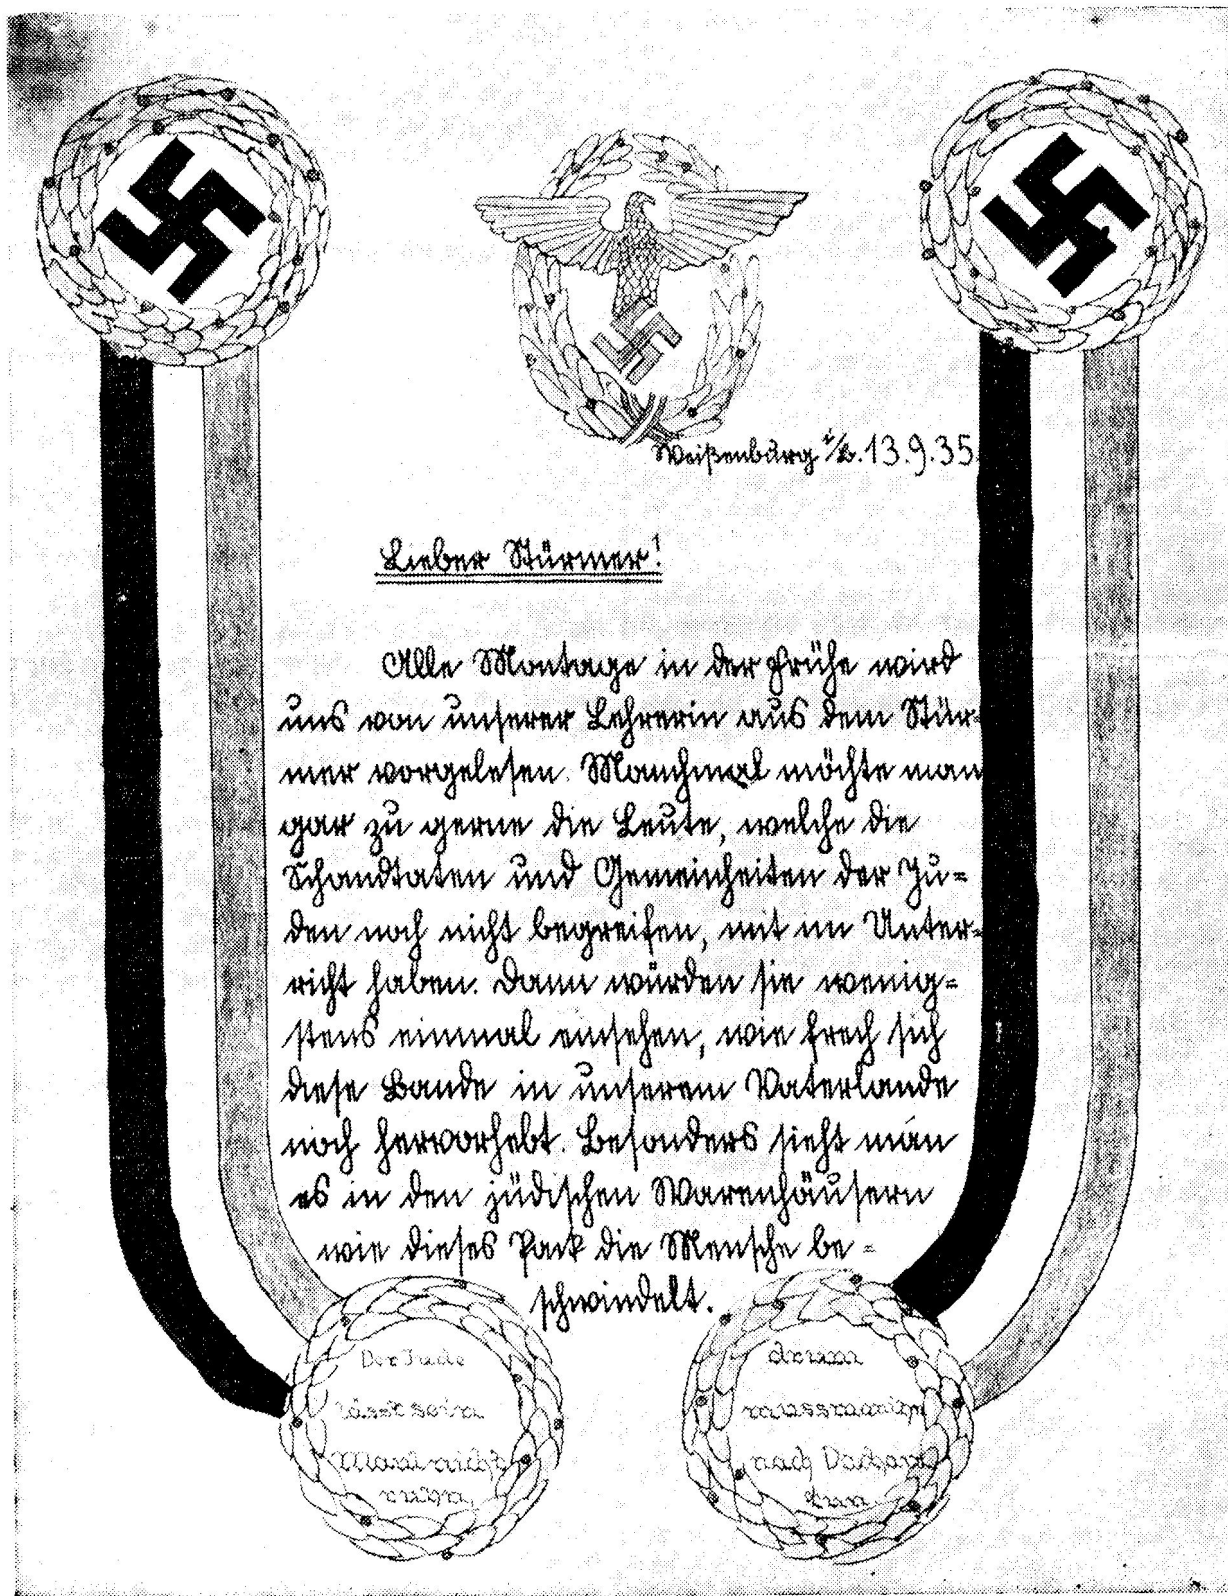 Weißenburg i/B. 13.9.35
Lieber Stürmer!
Alle Montage in der Frühe wird
uns von unserer Lehrerin aus dem Stür-
mer vorgelesen. Manchmal möchte man
gar zu gerne die Leute, welche die
Schandtaten und Gemeinheiten der Ju-
den noch nicht begreifen, mit im Unter-
richt haben. Dann würden sie wenig-
stens einmal einsehen, wie frech sich
diese Bande in unserem Vaterlande
noch hervorhebt. Besonders sieht man
es in den jüdischen Warenhäusern
wie dieses Pack die Mensche be-
schwindelt.
Der Jude
lässt sein
Maul nicht
ruhn,
drum
muss man ihn
nach Dachau
tun